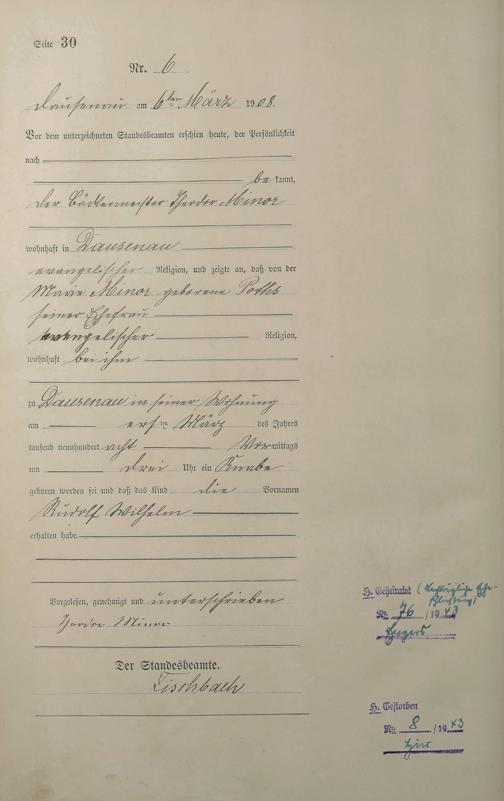 Seite 30
Nr. 6
Dausenau am 6ten März 1908.
Vor dem unterzeichneten Standesbeamten erschien heute, der Persönlichkeit
nach
be kannt,
der Theodor Minor
wohnhaft in Dausenau
evangelischer Religion, und zeigte an, daß von der
Marie Minor geborene Poths
seiner Ehefrau
evangelischer Religion,
wohnhaft bei ihm
zu Dausenau in seiner Wohnung
am ersten März des Jahres
tausend neunhundert acht Vormittags
um drei Uhr ein Knabe
geboren worden sei und daß das Kind die Vornamen
Rudolf Wilhelm
erhalten habe.
Vorgelesen, genehmigt und unterschrieben
Theodor Minor
Der Standesbeamte.
Fischbach
H. Geheiratet (Nachträgliche Ehe-
schließung)
Nr. 76 /1943
H. Gestorben
Nr. 8 /1943
hier